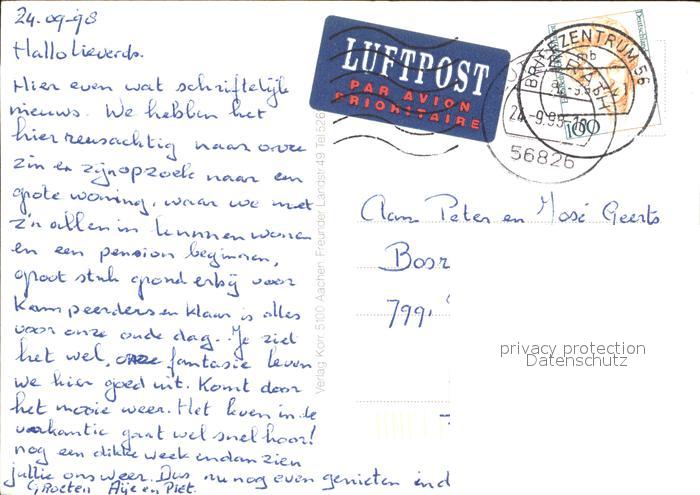 24.09-98
Hallo lieverds.
Hier even wat schriftelijk
nieuws. We hebben het
hier reusachtig naar onze
zin en zijn op zoek naar een
grote woning, waar we met
z'n allen in kunnen wonen
en een pension beginnen,
groot stuk grond erbij voor
Kampeerders en klaar is alles
voor onze oude dag. Je ziet
het wel, onze fantasie leven
we hier goed uit. Komt door
het mooie weer. Het leven in de
vakantie gaat wel snel hoor!
nog een dikke week en dan zien
jullie ons weer. Dus nu nog even genieten
Groeten Aije en Piet.
Verlag Korr, 5100 Aachen, Freunder Landstr. 49
LUFTPOST
PAR AVION
PRIORITAIRE
BRIEFZENTRUM 56
mb
24.-9.98-18
56826
100
Deutschland
Aan Peter en José Geerts
Bosr
799
privacy protection
Datenschutz